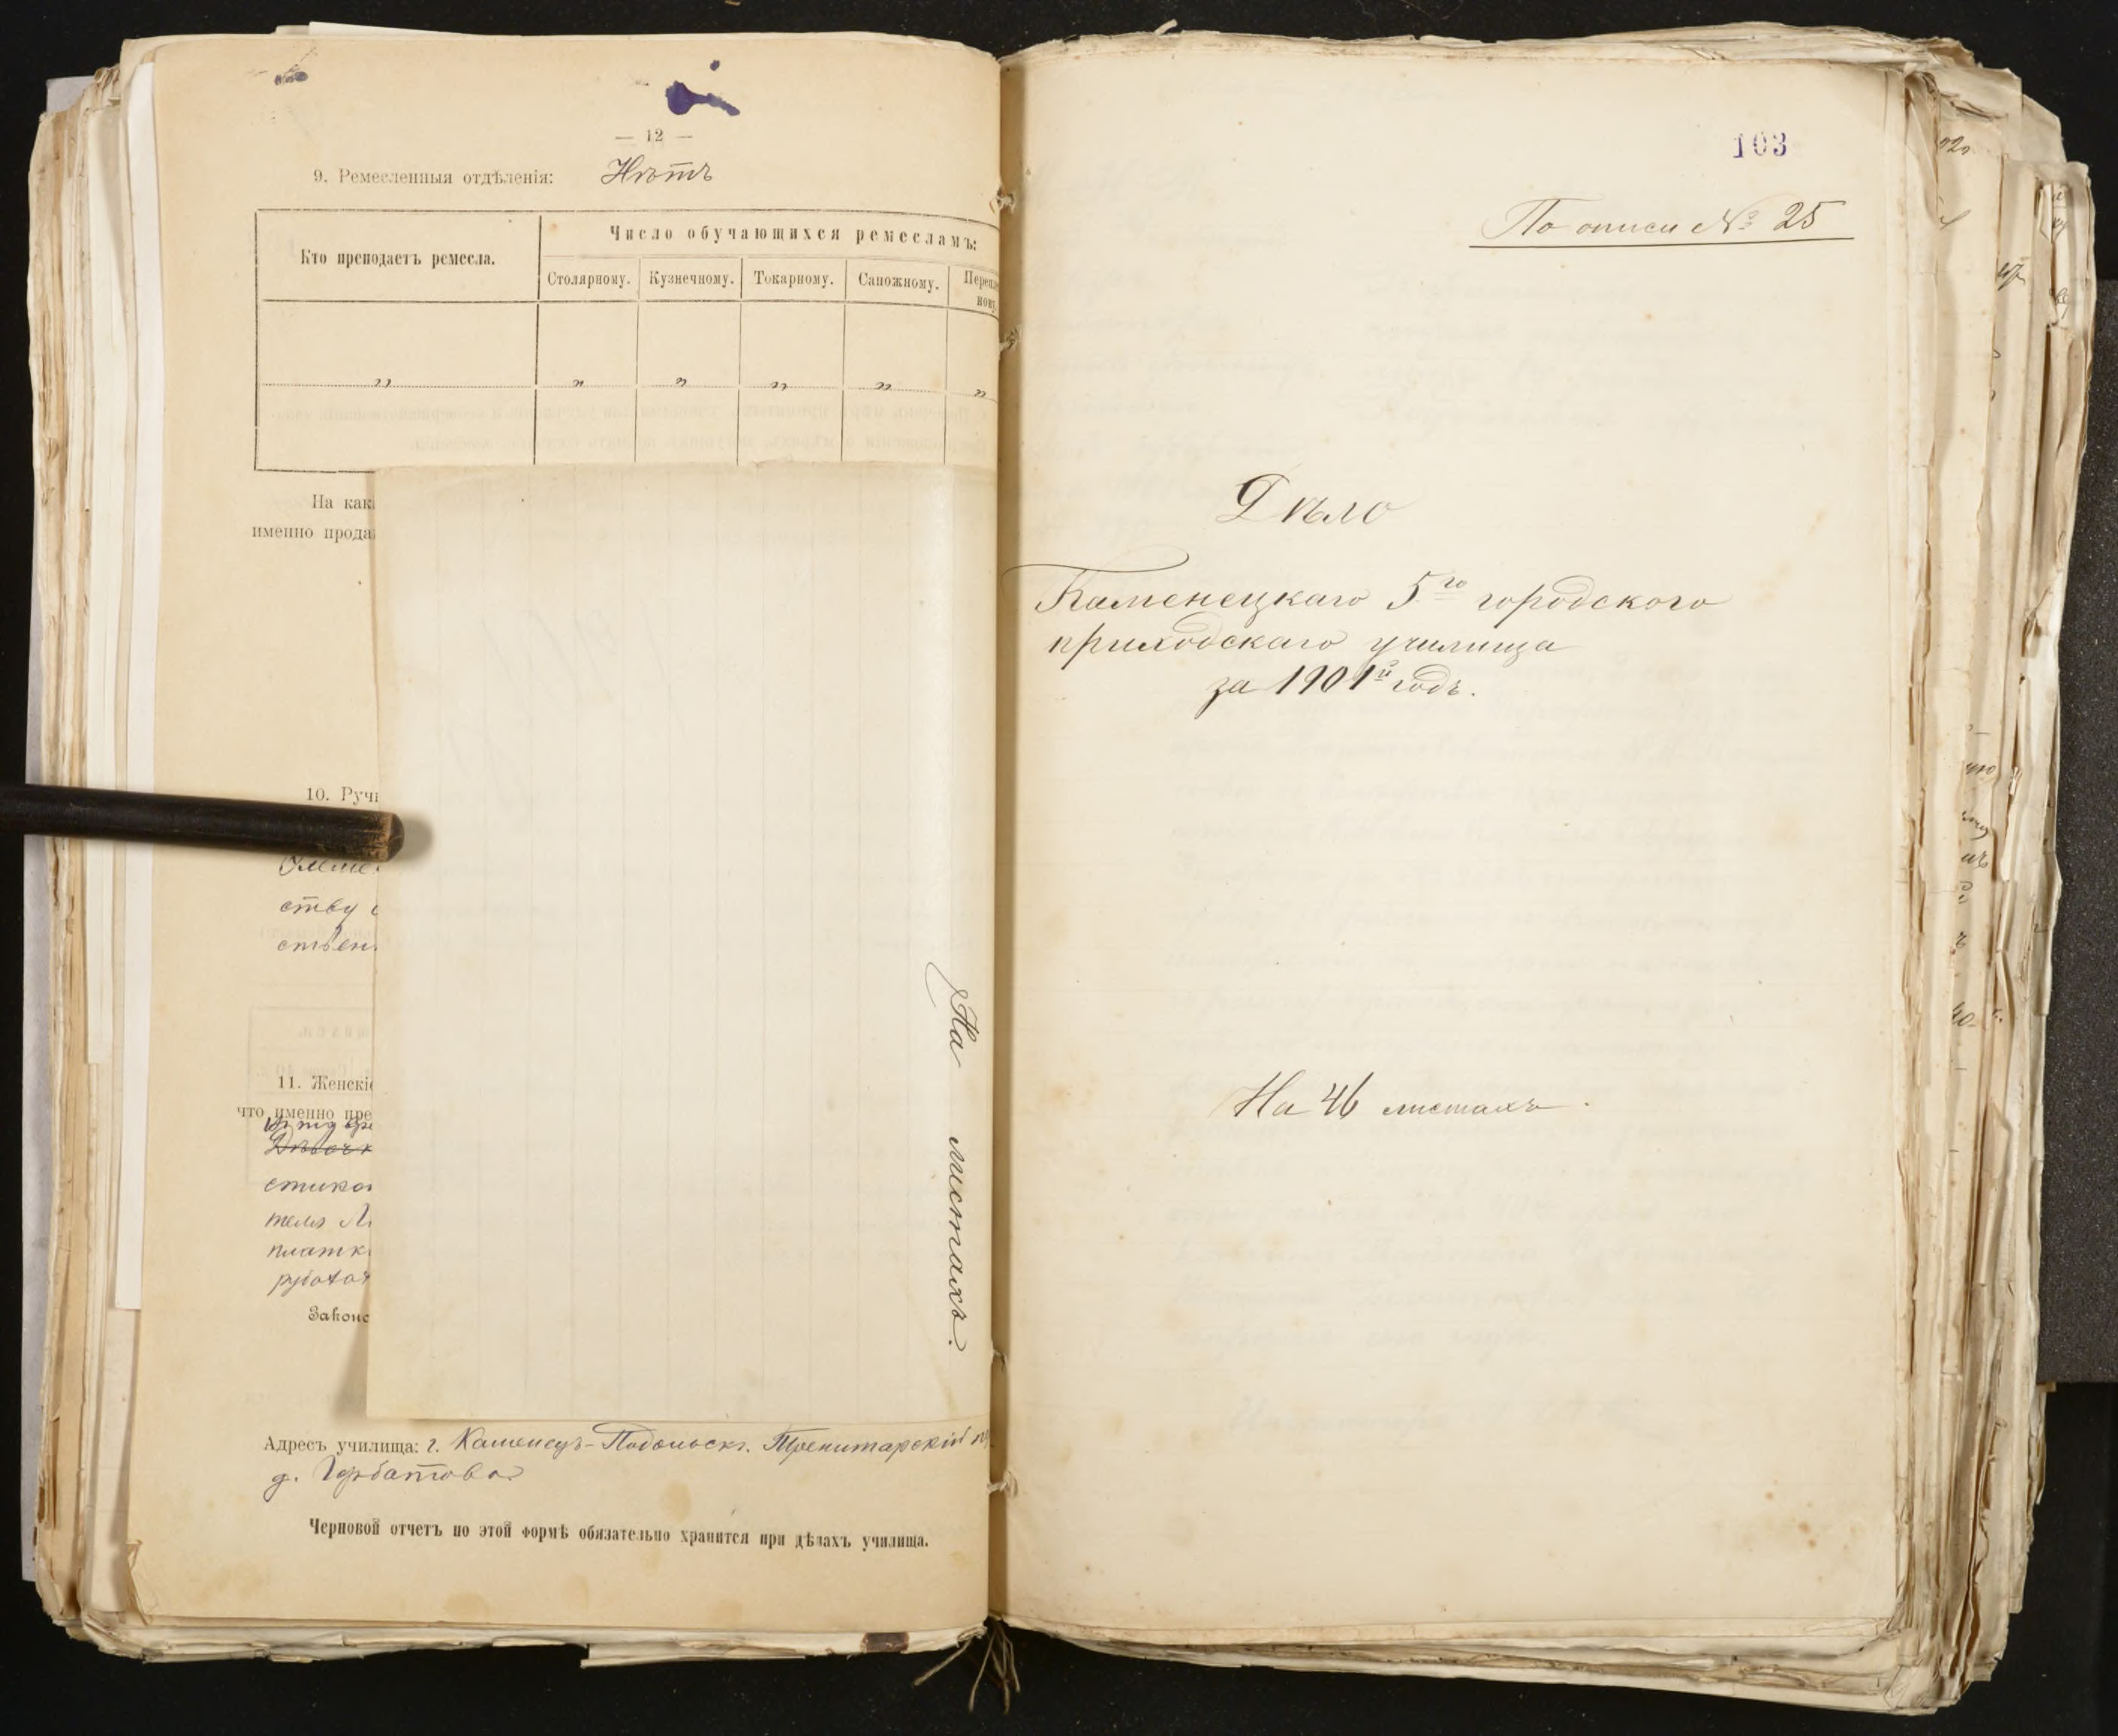 — 12 —
9. Ремесленныя отдѣленія: Нѣтъ
Кто преподаетъ ремесла.
Число обучающихся ремесламъ:
Столярному. Кузнечному. Токарному. Сапожному.
„ „ „ „ „ „
На как
именно прода
10. Руч
ству
ствен
11. Женскі
что именно пре
стико
платк
Законо
На листахъ.
Адресъ училища: г. Каменецъ-Подольскъ.
д. Горбатова
Черновой отчетъ по этой формѣ обязательно хранится при дѣлахъ училища.
103
По описи № 25
Дѣло
Каменецкаго 5го городского
приходскаго училища
за 1901й годъ.
На 46 листахъ.